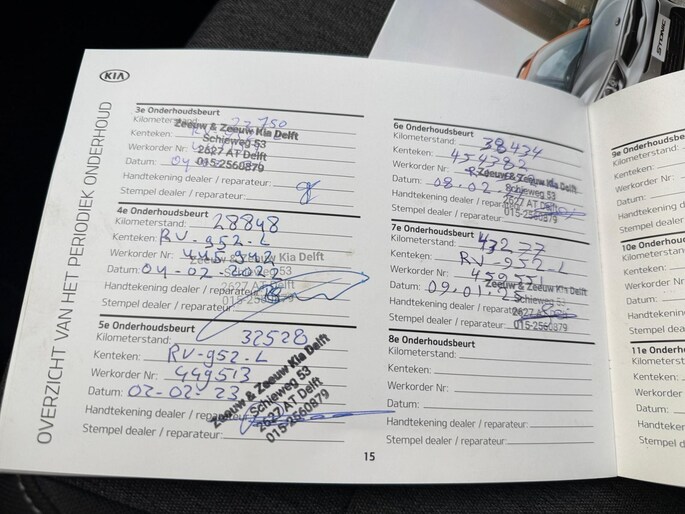 KIA
OVERZICHT VAN HET PERIODIEK ONDERHOUD
3e Onderhoudsbeurt
Kilometerstand: 23750
Kenteken:
Werkorder Nr
Datum: 04
Handtekening dealer / reparateur:
Stempel dealer / reparateur:
Zeeuw & Zeeuw Kia Delft
Schieweg 53
2627 AT Delft
015-2560879
4e Onderhoudsbeurt
Kilometerstand: 28848
Kenteken: RV-952-L
Werkorder Nr: 445942
Datum: 04-02-2022
Handtekening dealer / reparateur:
Stempel dealer / reparateur:
Zeeuw & Zeeuw Kia Delft
Schieweg 53
2627 AT Delft
015-2560879
5e Onderhoudsbeurt
Kilometerstand: 32528
Kenteken: RV-952-L
Werkorder Nr: 449513
Datum: 02-02-23
Handtekening dealer / reparateur:
Stempel dealer / reparateur:
Zeeuw & Zeeuw Kia Delft
Schieweg 53
2627 AT Delft
015-2560879
6e Onderhoudsbeurt
Kilometerstand: 38434
Kenteken: 454382
Werkorder Nr
Datum: 08.02.
Handtekening dealer / reparateur:
Stempel dealer / reparateur:
Zeeuw & Zeeuw Kia Delft
Schieweg 53
2627 AT Delft
015-2560879
7e Onderhoudsbeurt
Kilometerstand: 43277
Kenteken: RV-952-L
Werkorder Nr:
Datum: 09.01.25
Handtekening dealer / reparateur:
Stempel dealer / reparateur:
Zeeuw & Zeeuw Kia Delft
Schieweg 53
2627 AT
015-2560879
8e Onderhoudsbeurt
Kilometerstand:
Kenteken:
Werkorder Nr:
Datum:
Handtekening dealer / reparateur:
Stempel dealer / reparateur:
15
9e Onderhoudsbe
Kilometerstand:
Kenteken:
Werkorder Nr:
Datum:
Handtekening d
Stempel dealer
10e Onderho
Kilometerstan
Kenteken:
Werkorder
Datum:
Handteken
Stempel d
11e Onderh
Kilometers
Kenteken
Werkord
Datum
Handt
Stempel d
STONIC